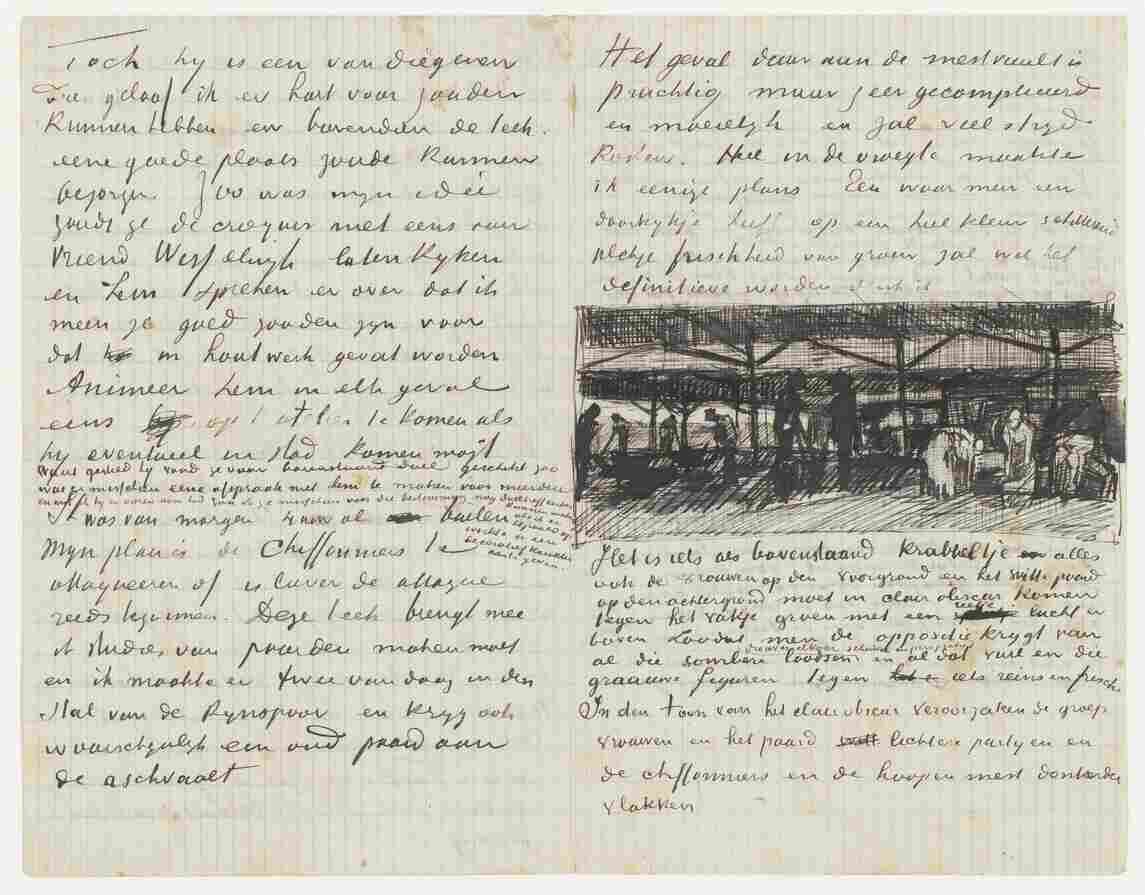 Toch hij is een van diegenen
die geloof ik er hart voor zouden
kunnen hebben en bovendien de teek.
eene goede plaats zoude kunnen
bezorgen Zoo was mijn idée
zoudt ge de croquis niet eens aan
vriend Wesselingh laten kijken
en hem spreken er over dat ik
meen ze goed zouden zijn voor
dat in houtwerk gevat worden
Animeer hem in elk geval
eens op 't atelier te komen als
hij eventueel in stad komen mogt
want geloof hij vond je voor bovenstaand doel geschikt zoo
was er misschien eene afspraak met hem te maken voor meerdere
Ik was van morgen 4 uur al buiten
Mijn plan is de Chiffonniers te
attaqueeren of is liever de attaque
reeds begonnen. Deze teek brengt mee
ik studies van paarden maken moet
en ik maakte er twee van daag in den
stal van de Rynspoor en kryg ook
waarschijnlijk een oud paard aan
de aschvaalt
Het geval daar aan de mestvaalt is
prachtig maar zeer gecompliceerd
en moeielijk en zal veel stryd
kosten. Heel in de vroegte maakte
ik eenige plans Een waar men een
doorkykje heeft op een heel klein schitterend
plekje frischheid van groen zal wel het
definitieve worden denk ik
Het is iets als bovenstaand krabbeltje en alles
ook de vrouwen op den voorgrond en het witte paard
op den achtergrond moet in clair obscur komen
tegen het vakje groen met een reepje lucht er
boven zoodat men de oppositie krygt van
al die sombere loodsen in al dat vuil en die
graauwe figuren tegen iets reins en frisch
In den toon van het clair obscur veroorzaken de groep
vrouwen en het paard lichtere partyen en
de chiffonniers en de hoopen mest donkerder
vlakken